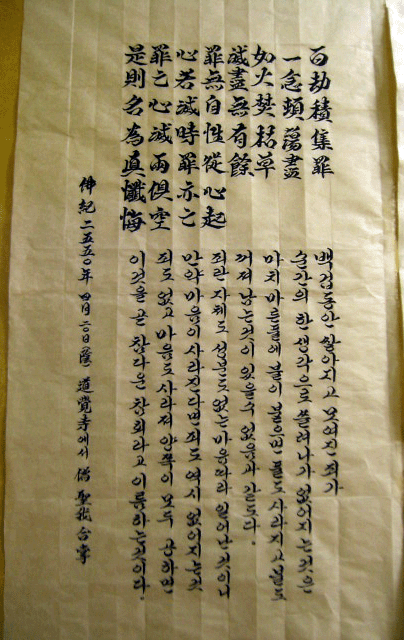 百劫積集罪
一念頓蕩盡
如火焚枯草
滅盡無有餘
罪無自性從心起
心若滅時罪亦亡
罪亡心滅兩俱空
是則名為真懺悔
백겁동안 쌓아지고 모여진 죄가
순간의 한 생각으로 쓸려나가 없어지는것은
마치 마른풀에 불이 붙으면 풀도 사라지고 불도
꺼져 남는것이 있을수 없음과 같도다.
죄란 자체도 성품도 없는 마음따라 일어난것이니
만약 마음이 사라진다면 죄도 역시 없어지는것
죄도 없고 마음도 사라져 양쪽이 모두 공하면
이것을 곧 참다운 참회라고 이름하는것이다.
佛紀 二五五〇年 四月 二〇日 道覺寺에서 僧 聖我 合掌